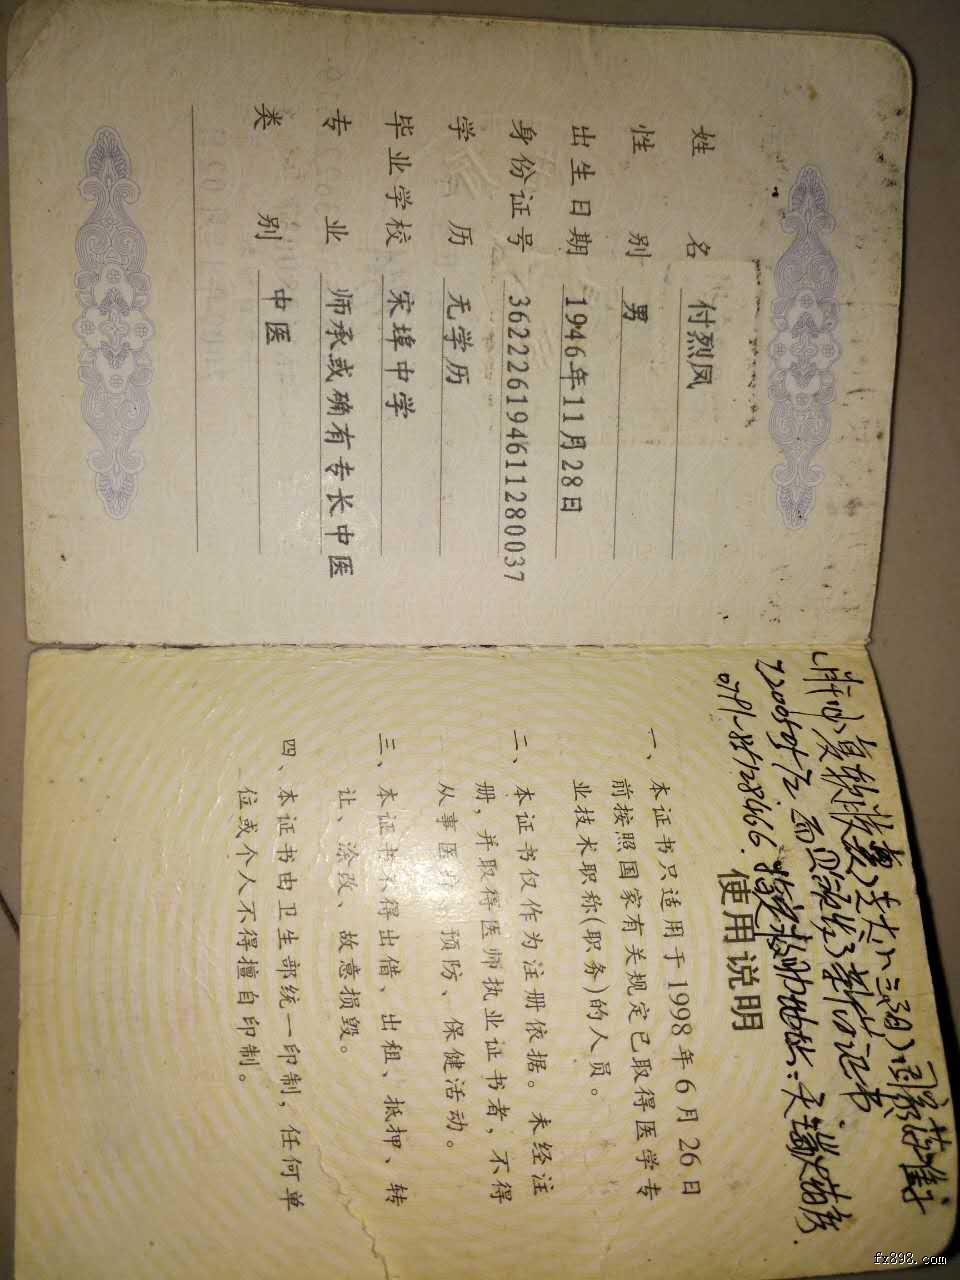 姓名 付烈凤
性别 男
出生日期 1946年11月28日
身份证号 362226194611280037
学历 无学历
毕业学校 宋埠中学
专业 师承或确有专长中医
类别 中医
使用说明
一、本证书只适用于1998年6月26日
前按照国家有关规定已取得医学专
业技术职称(职务)的人员。
二、本证书仅作为注册依据。未经注
册,并取得医师执业证书者,不得
从事医疗、预防、保健活动。
三、本证书不得出借、出租、抵押、转
让、涂改、故意损毁。
四、本证书由卫生部统一印制,任何单
位或个人不得擅自印制。
fx898.com